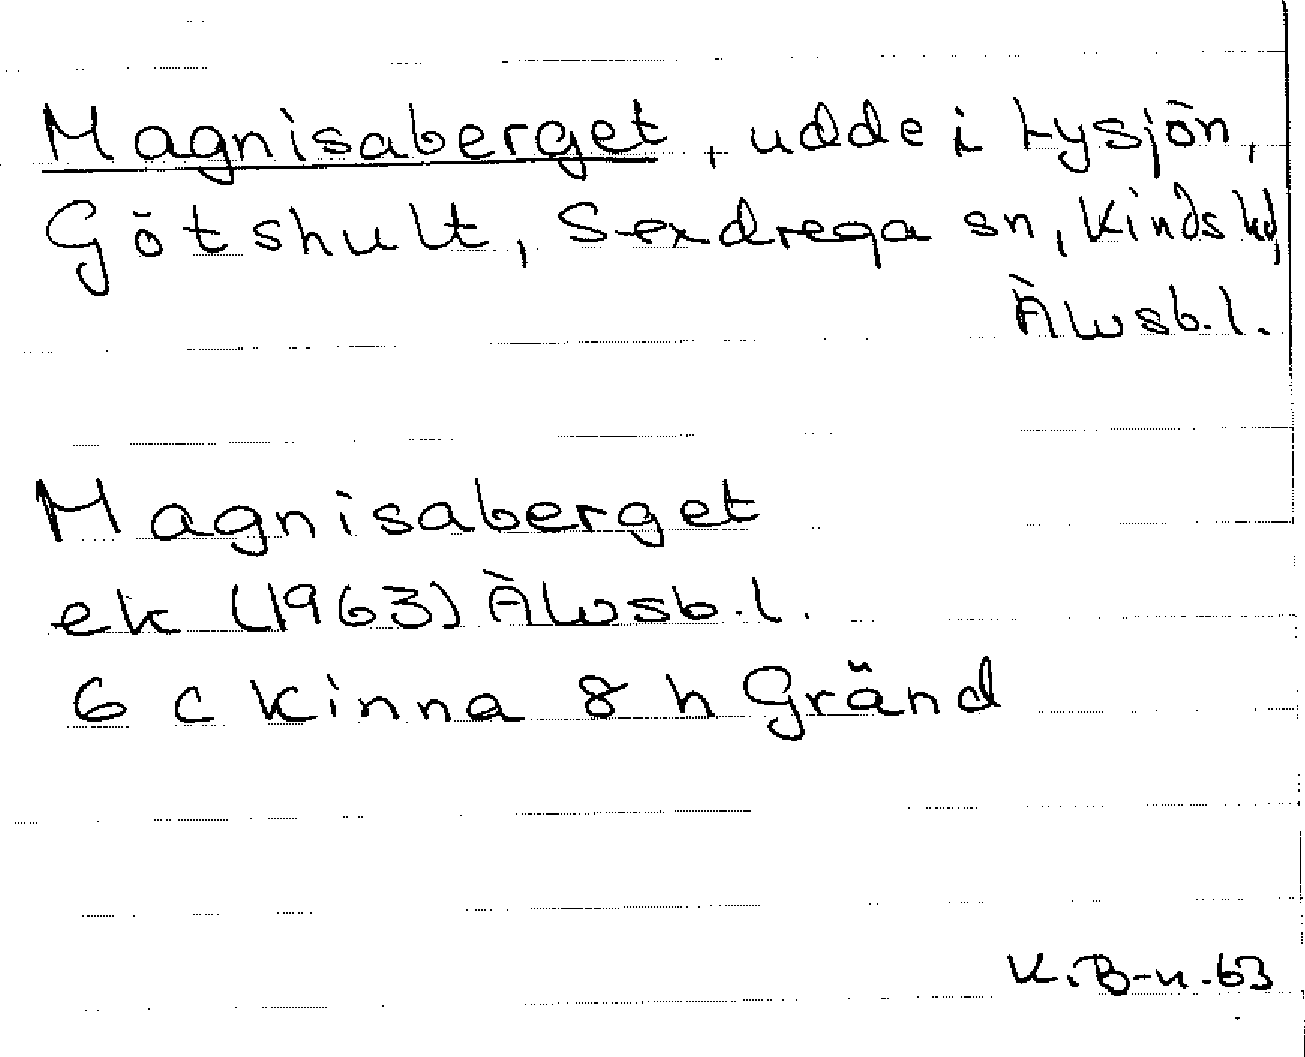 Magnisaberget, udde i Lysjön,
Götshult, Sexdrega sn, Kinds hd,
Älvsb.l.
Magnisaberget
ek (1963) Älvsb.l.
6 c Kinna 8 h Gränd
K.B-n.63